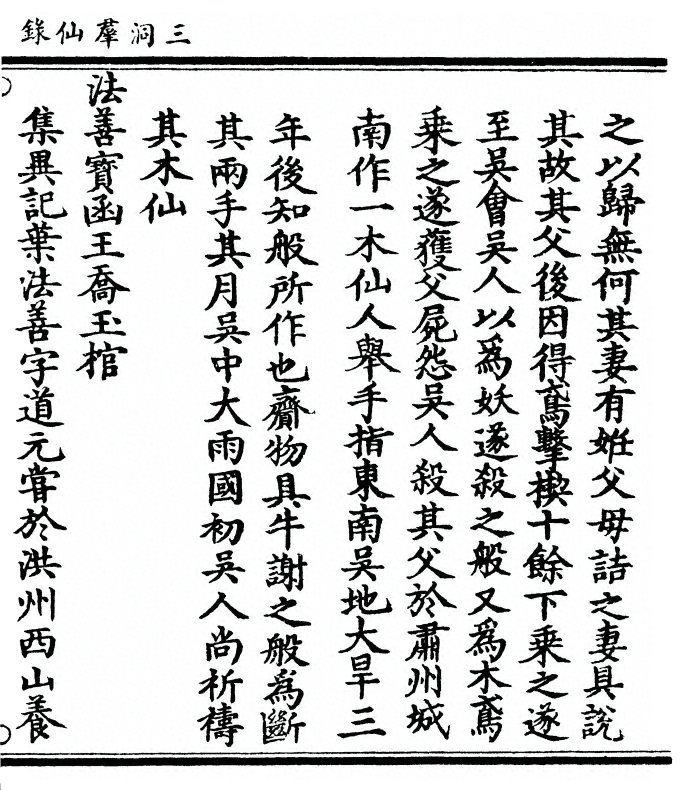 三洞羣仙錄
之以歸無何其妻有姙父母詰之妻具說
其故其父後因得鳶擊楔十餘下乘之遂
至吳會吳人以爲妖遂殺之般又爲木鳶
乘之遂獲父屍怨吳人殺其父於肅州城
南作一木仙人舉手指東南吳地大旱三
年後知般所作也齎物具牛謝之般爲斷
其兩手其月吳中大雨國初吳人尚祈禱
其木仙
法善寶函王喬玉棺
集異記葉法善字道元嘗於洪州西山養